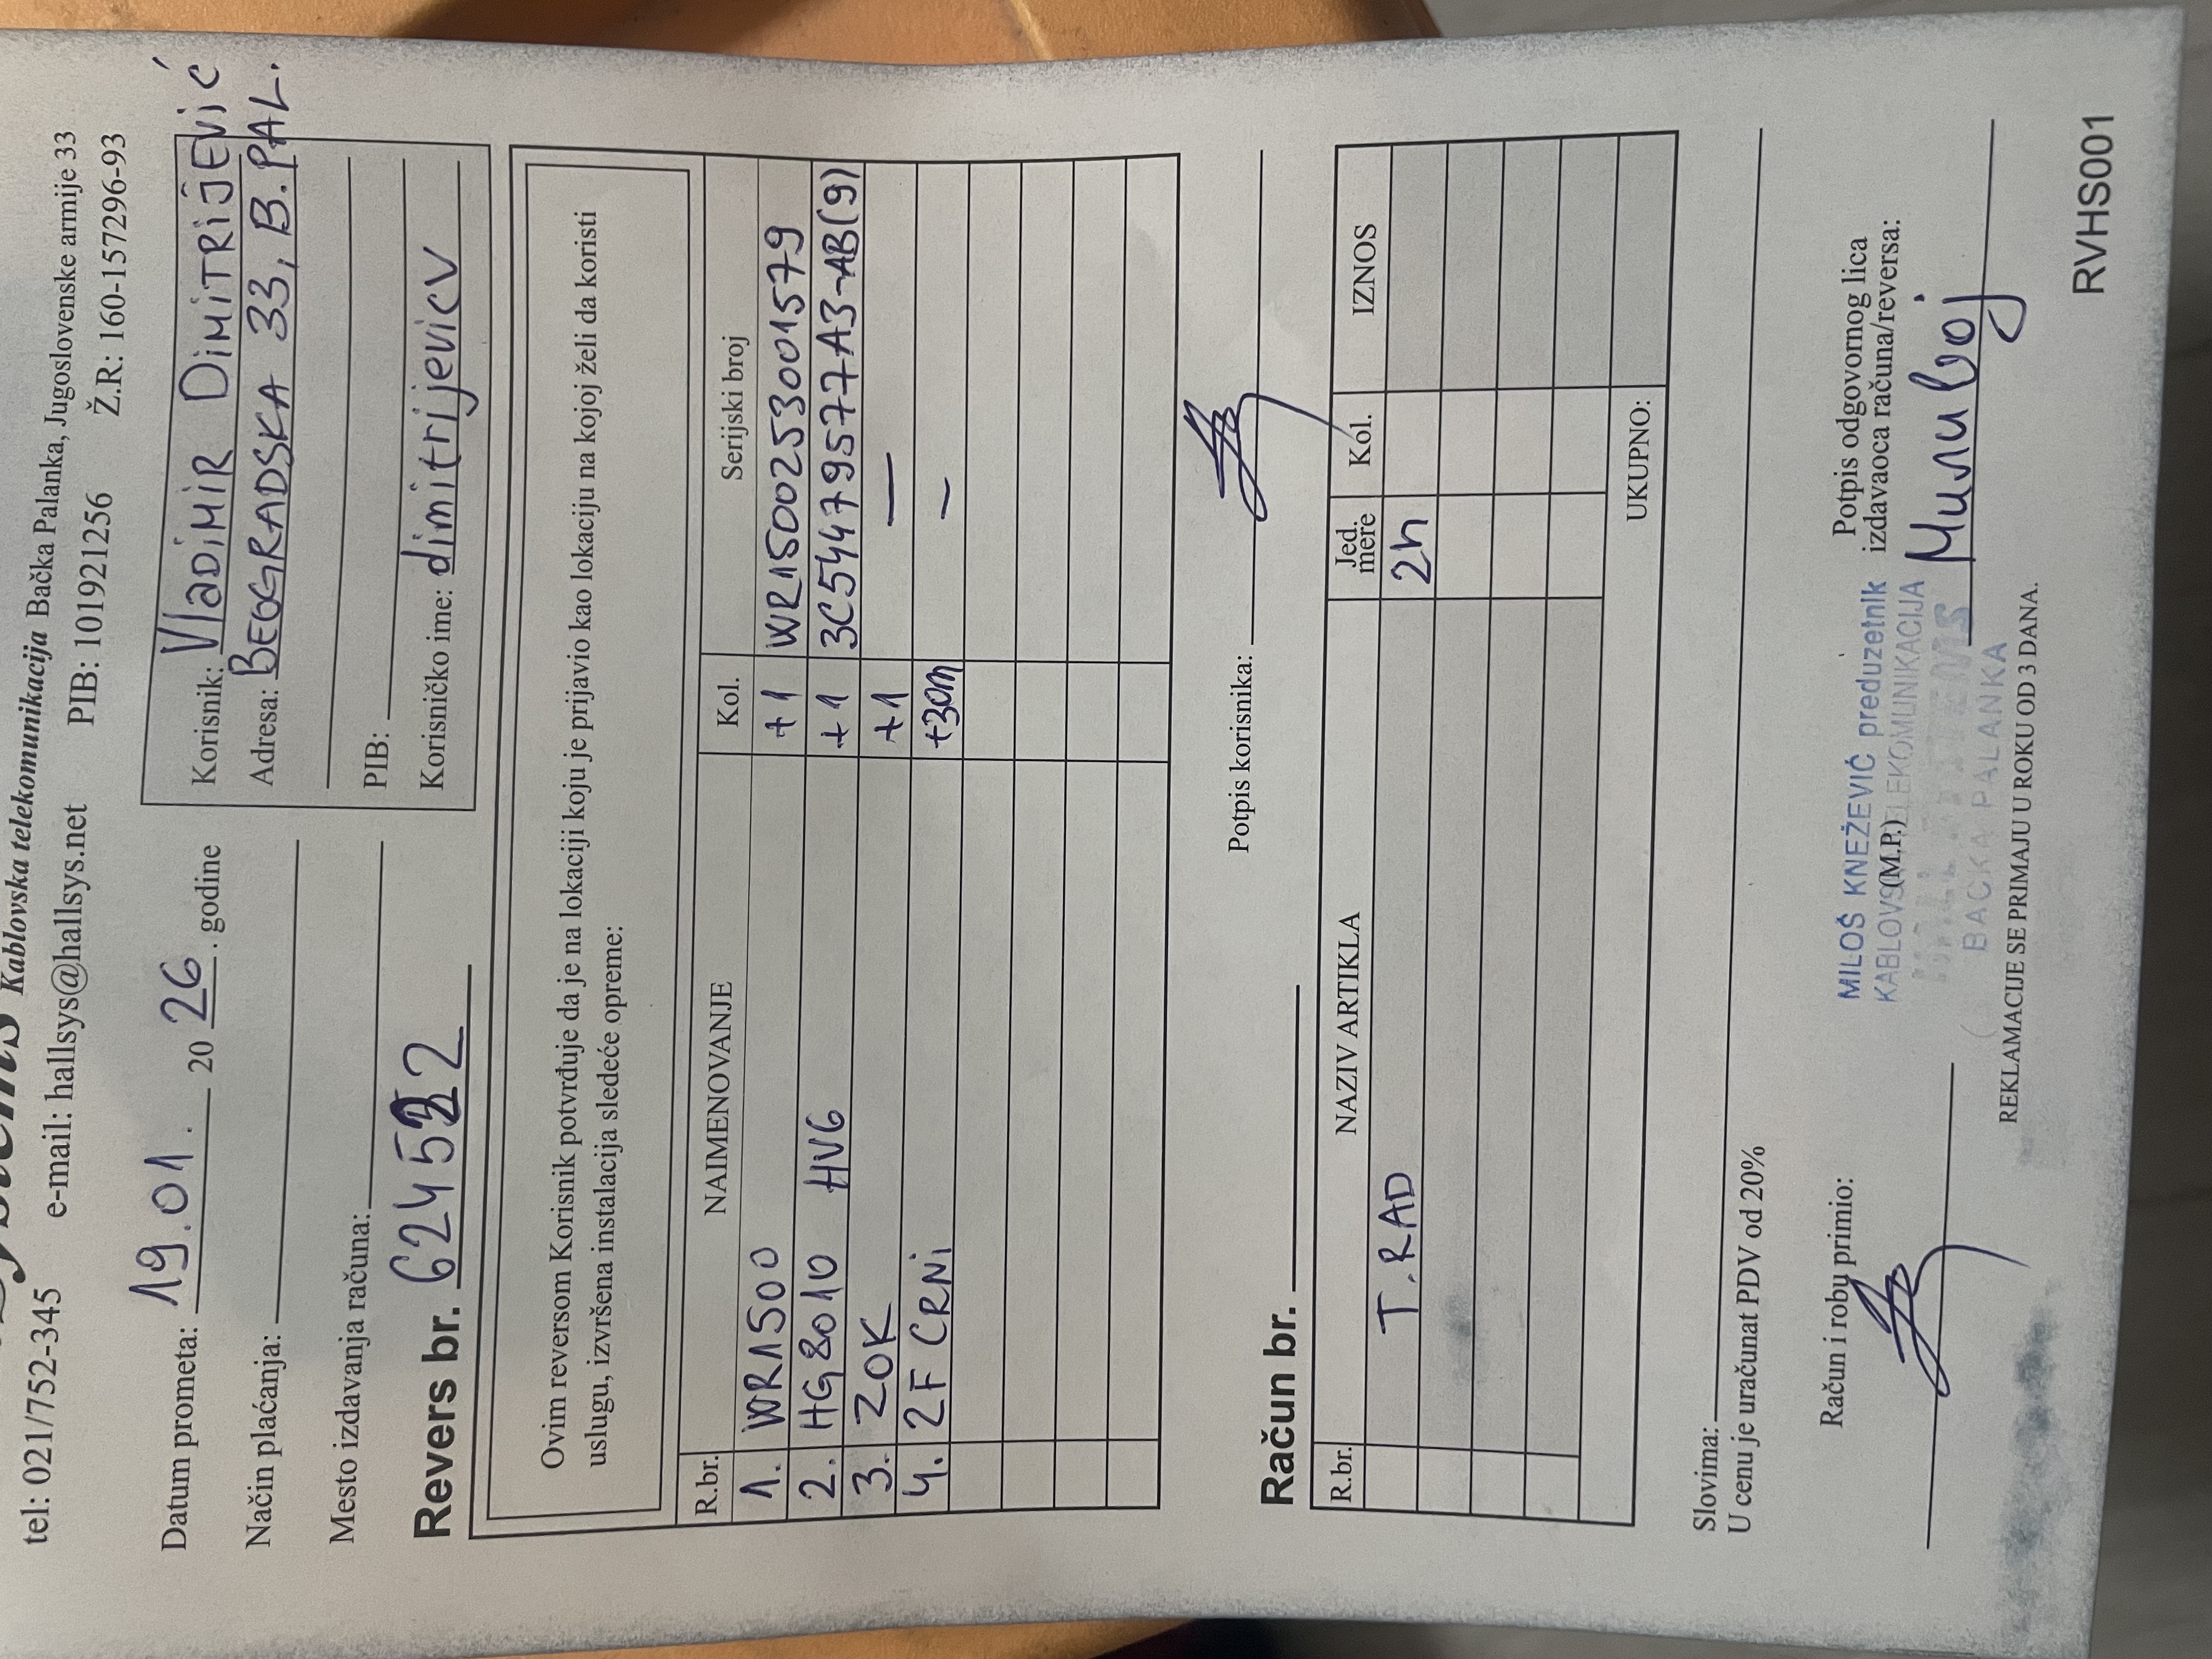 Kablovska telekomunikacija Bačka Palanka, Jugoslovenske armije 33
tel: 021/752-345 e-mail: hallsys@hallsys.net PIB: 101921256 Ž.R: 160-157296-93
Datum prometa: 19.01. 2026. godine
Način plaćanja:
Mesto izdavanja računa:
Korisnik: VLADIMIR DIMITRIJEVIĆ
Adresa: BEOGRADSKA 33, B.PAL.
PIB:
Korisničko ime: dimitrijevicv
Revers br. 624522
Ovim reversom Korisnik potvrđuje da je na lokaciji koju je prijavio kao lokaciju na kojoj želi da koristi
uslugu, izvršena instalacija sledeće opreme:
R.br. NAIMENOVANJE Kol. Serijski broj
1. WR1500 +1 WR1500253001579
2. HG8010 HV6 +1 3C54479577A3-AB(9)
3. ZOK +1 —
4. 2F CRNI +30m —
Potpis korisnika:
Račun br.
R.br. NAZIV ARTIKLA Jed. mere Kol. IZNOS
T.RAD 2h
UKUPNO:
Slovima:
U cenu je uračunat PDV od 20%
Račun i robu primio:
MILOŠ KNEŽEVIĆ preduzetnik
KABLOVSKA TELEKOMUNIKACIJA
(M.P.)
BAČKA PALANKA
Potpis odgovornog lica
izdavaoca računa/reversa:
REKLAMACIJE SE PRIMAJU U ROKU OD 3 DANA.
RVHS001